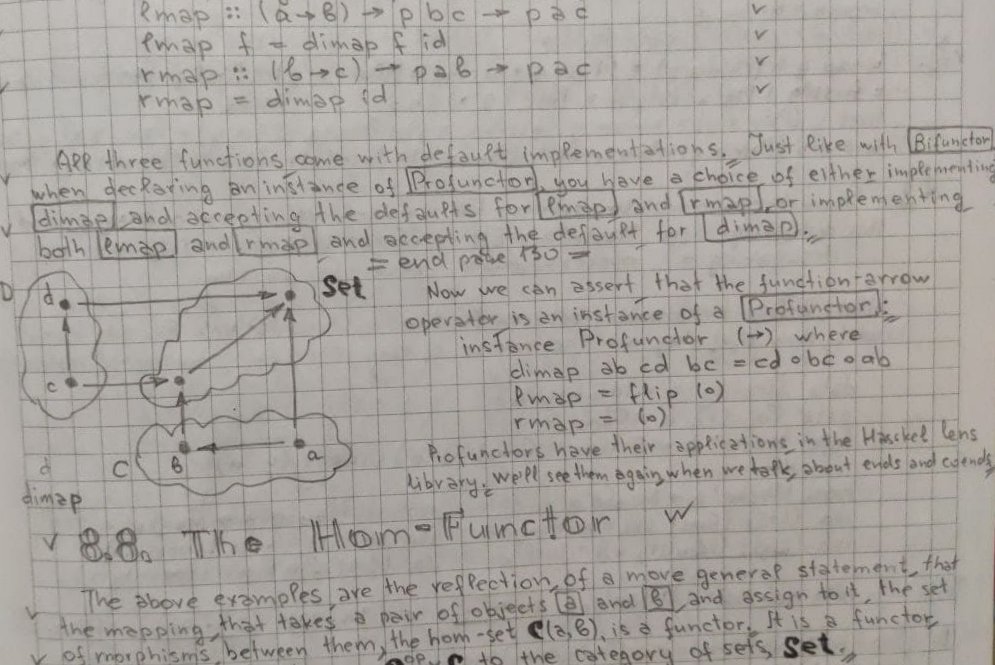 lmap :: (a → b) → p b c → p a c
lmap f = dimap f id
rmap :: (b → c) → p a b → p a c
rmap = dimap id
All three functions come with default implementations. Just like with Bifunctor
when declaring an instance of Profunctor, you have a choice of either implementing
dimap and accepting the defaults for lmap and rmap, or implementing
both lmap and rmap and accepting the default for dimap.
= end page 130 =
D
d
Set
c
C
b
a
d
dimap
Now we can assert that the function-arrow
operator is an instance of a Profunctor:
instance Profunctor (→) where
dimap ab cd bc = cd ∘ bc ∘ ab
lmap = flip (∘)
rmap = (∘)
Profunctors have their applications in the Haskel lens
library. We'll see them again when we talk about ends and coends
8.8. The Hom-Functor
The above examples are the reflection of a more general statement that
the mapping that takes a pair of objects a and b and assign to it the set
of morphisms between them, the hom-set C(a,b), is a functor. It is a functor
to the category of sets, Set.